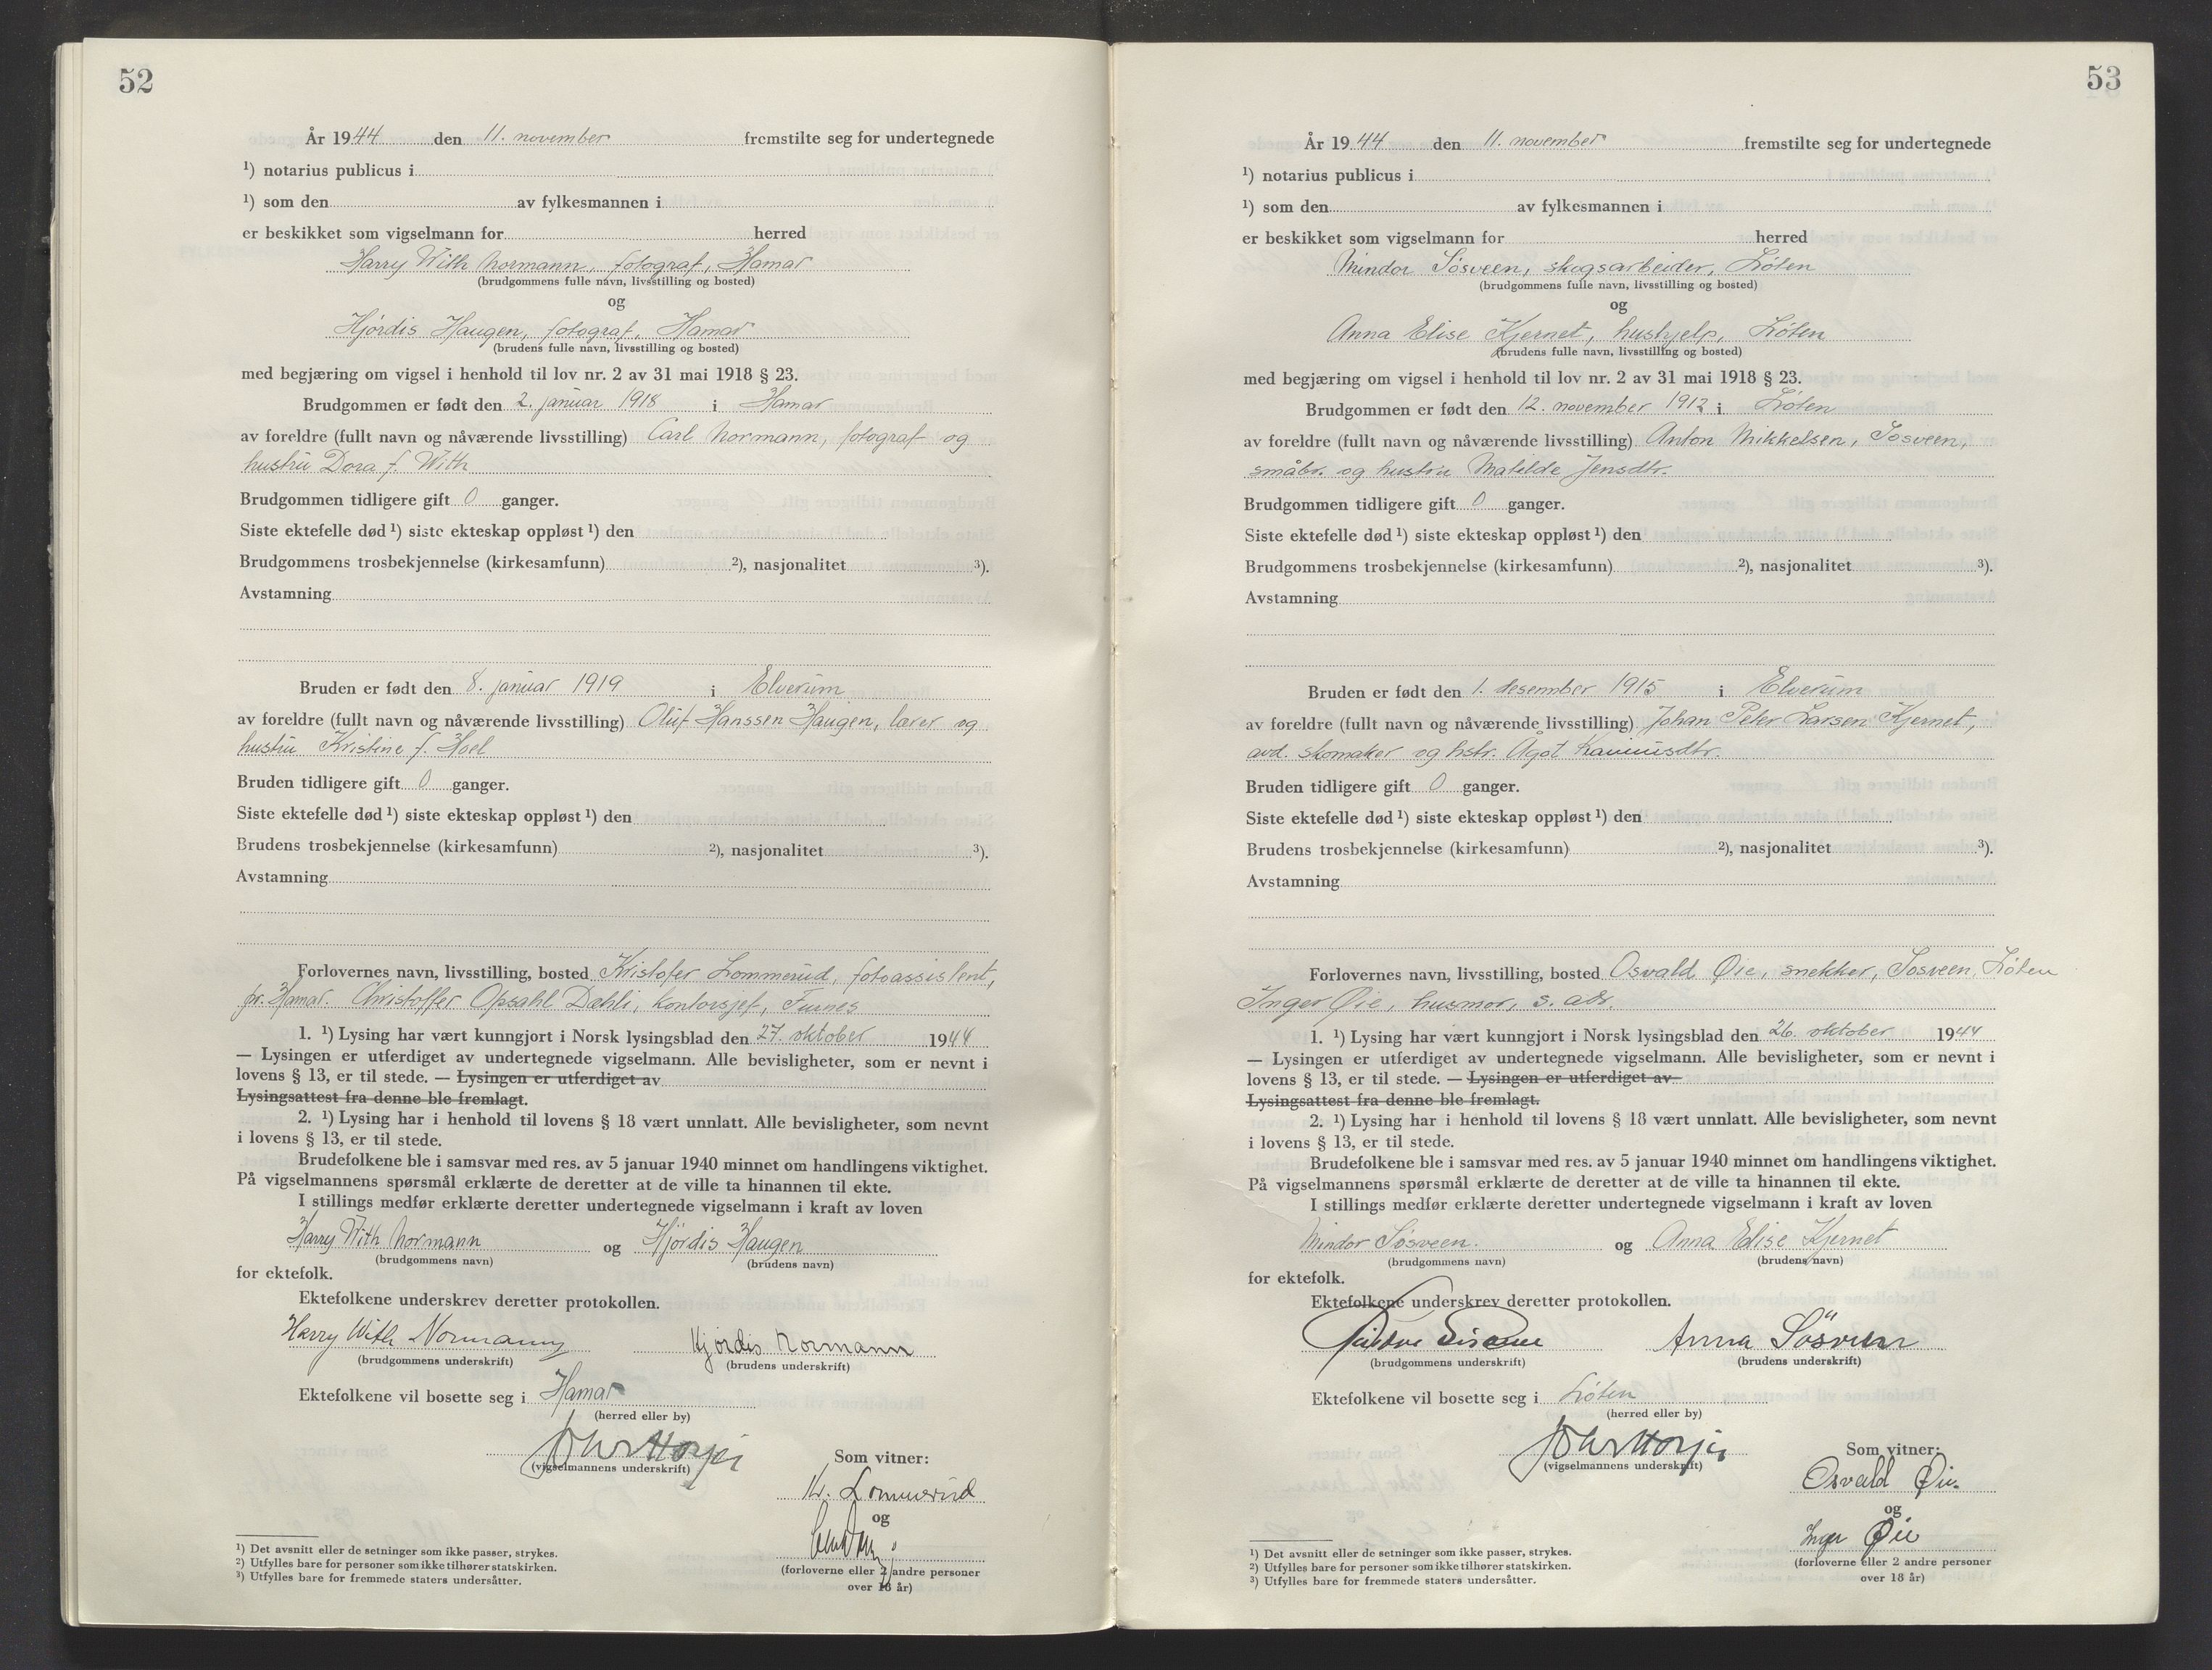 52
År 1944 den 11. november fremstilte seg for undertegnede
¹) notarius publicus i
¹) som den av fylkesmannen i
er beskikket som vigselmann for herred
Harry With Normann, fotograf, Hamar
(brudgommens fulle navn, livsstilling og bosted)
og
Hjördis Haugen, fotograf, Hamar
(brudens fulle navn, livsstilling og bosted)
med begjæring om vigsel i henhold til lov nr. 2 av 31 mai 1918 § 23.
Brudgommen er født den 2. januar 1918 i Hamar
av foreldre (fullt navn og nåværende livsstilling) Carl Normann, fotograf og
hustru Dora f. With
Brudgommen tidligere gift 0 ganger.
Siste ektefelle død ¹) siste ekteskap oppløst ¹) den
Brudgommens trosbekjennelse (kirkesamfunn) ²), nasjonalitet ³).
Avstamning
Bruden er født den 8. januar 1919 i Elverum
av foreldre (fullt navn og nåværende livsstilling) Oluf Hanssen Haugen, lærer og
hustru Kristine f. Hoel
Bruden tidligere gift 0 ganger.
Siste ektefelle død ¹) siste ekteskap oppløst ¹) den
Brudens trosbekjennelse (kirkesamfunn) ²), nasjonalitet ³).
Avstamning
Forlovernes navn, livsstilling, bosted Kristofer Lommerud, fotoassistent,
pr. Hamar. Christoffer Opsahl Dæhli, kontorsjef, Furnes
1. ¹) Lysing har vært kunngjort i Norsk lysingsblad den 27. oktober 1944
— Lysingen er utferdiget av undertegnede vigselmann. Alle bevisligheter, som er nevnt i
lovens § 13, er til stede. — Lysingen er utferdiget av
Lysingsattest fra denne ble fremlagt.
2. ¹) Lysing har i henhold til lovens § 18 vært unnlatt. Alle bevisligheter, som nevnt
i lovens § 13, er til stede.
Brudefolkene ble i samsvar med res. av 5 januar 1940 minnet om handlingens viktighet.
På vigselmannens spørsmål erklærte de deretter at de ville ta hinannen til ekte.
I stillings medfør erklærte deretter undertegnede vigselmann i kraft av loven
Harry With Normann og Hjördis Haugen
(brudgommens navn) (brudens navn)
for ektefolk.
Ektefolkene underskrev deretter protokollen.
Harry With Normann Hjördis Normann
(brudgommens underskrift) (brudens underskrift)
Ektefolkene vil bosette seg i Hamar
(herred eller by)
(vigselmannens underskrift)
Som vitner:
Kr. Lommerud
og
(forloverne eller 2 andre personer
over 18 år)
¹) Det avsnitt eller de setninger som ikke passer, strykes.
²) Utfylles bare for personer som ikke tilhører statskirken.
³) Utfylles bare for fremmede staters undersåtter.
53
År 1944 den 11. november fremstilte seg for undertegnede
¹) notarius publicus i
¹) som den av fylkesmannen i
er beskikket som vigselmann for herred
Mindor Sösveen, skogsarbeider, Löten
(brudgommens fulle navn, livsstilling og bosted)
og
Anna Elise Kjernet, hushjelp, Löten
(brudens fulle navn, livsstilling og bosted)
med begjæring om vigsel i henhold til lov nr. 2 av 31 mai 1918 § 23.
Brudgommen er født den 12. november 1912 i Löten
av foreldre (fullt navn og nåværende livsstilling) Anton Mikkelsen, Sösveen,
småbr. og hustru Matilde Jensdtr.
Brudgommen tidligere gift 0 ganger.
Siste ektefelle død ¹) siste ekteskap oppløst ¹) den
Brudgommens trosbekjennelse (kirkesamfunn) ²), nasjonalitet ³).
Avstamning
Bruden er født den 1. desember 1915 i Elverum
av foreldre (fullt navn og nåværende livsstilling) Johan Peter Larsen Kjernet,
avd. skomaker og hstr. Ågot
Bruden tidligere gift 0 ganger.
Siste ektefelle død ¹) siste ekteskap oppløst ¹) den
Brudens trosbekjennelse (kirkesamfunn) ²), nasjonalitet ³).
Avstamning
Forlovernes navn, livsstilling, bosted Osvald Øie, snekker, Sösveen, Löten
Inger Øie, husmor, s. adr.
1. ¹) Lysing har vært kunngjort i Norsk lysingsblad den 26. oktober 1944
— Lysingen er utferdiget av undertegnede vigselmann. Alle bevisligheter, som er nevnt i
lovens § 13, er til stede. — Lysingen er utferdiget av
Lysingsattest fra denne ble fremlagt.
2. ¹) Lysing har i henhold til lovens § 18 vært unnlatt. Alle bevisligheter, som nevnt
i lovens § 13, er til stede.
Brudefolkene ble i samsvar med res. av 5 januar 1940 minnet om handlingens viktighet.
På vigselmannens spørsmål erklærte de deretter at de ville ta hinannen til ekte.
I stillings medfør erklærte deretter undertegnede vigselmann i kraft av loven
Mindor Sösveen. og Anna Elise Kjernet
(brudgommens navn) (brudens navn)
for ektefolk.
Ektefolkene underskrev deretter protokollen.
Anna Sösveen
(brudgommens underskrift) (brudens underskrift)
Ektefolkene vil bosette seg i Löten
(herred eller by)
(vigselmannens underskrift)
Som vitner:
Osvald Øie.
og
Inger Øie
(forloverne eller 2 andre personer
over 18 år)
¹) Det avsnitt eller de setninger som ikke passer, strykes.
²) Utfylles bare for personer som ikke tilhører statskirken.
³) Utfylles bare for fremmede staters undersåtter.